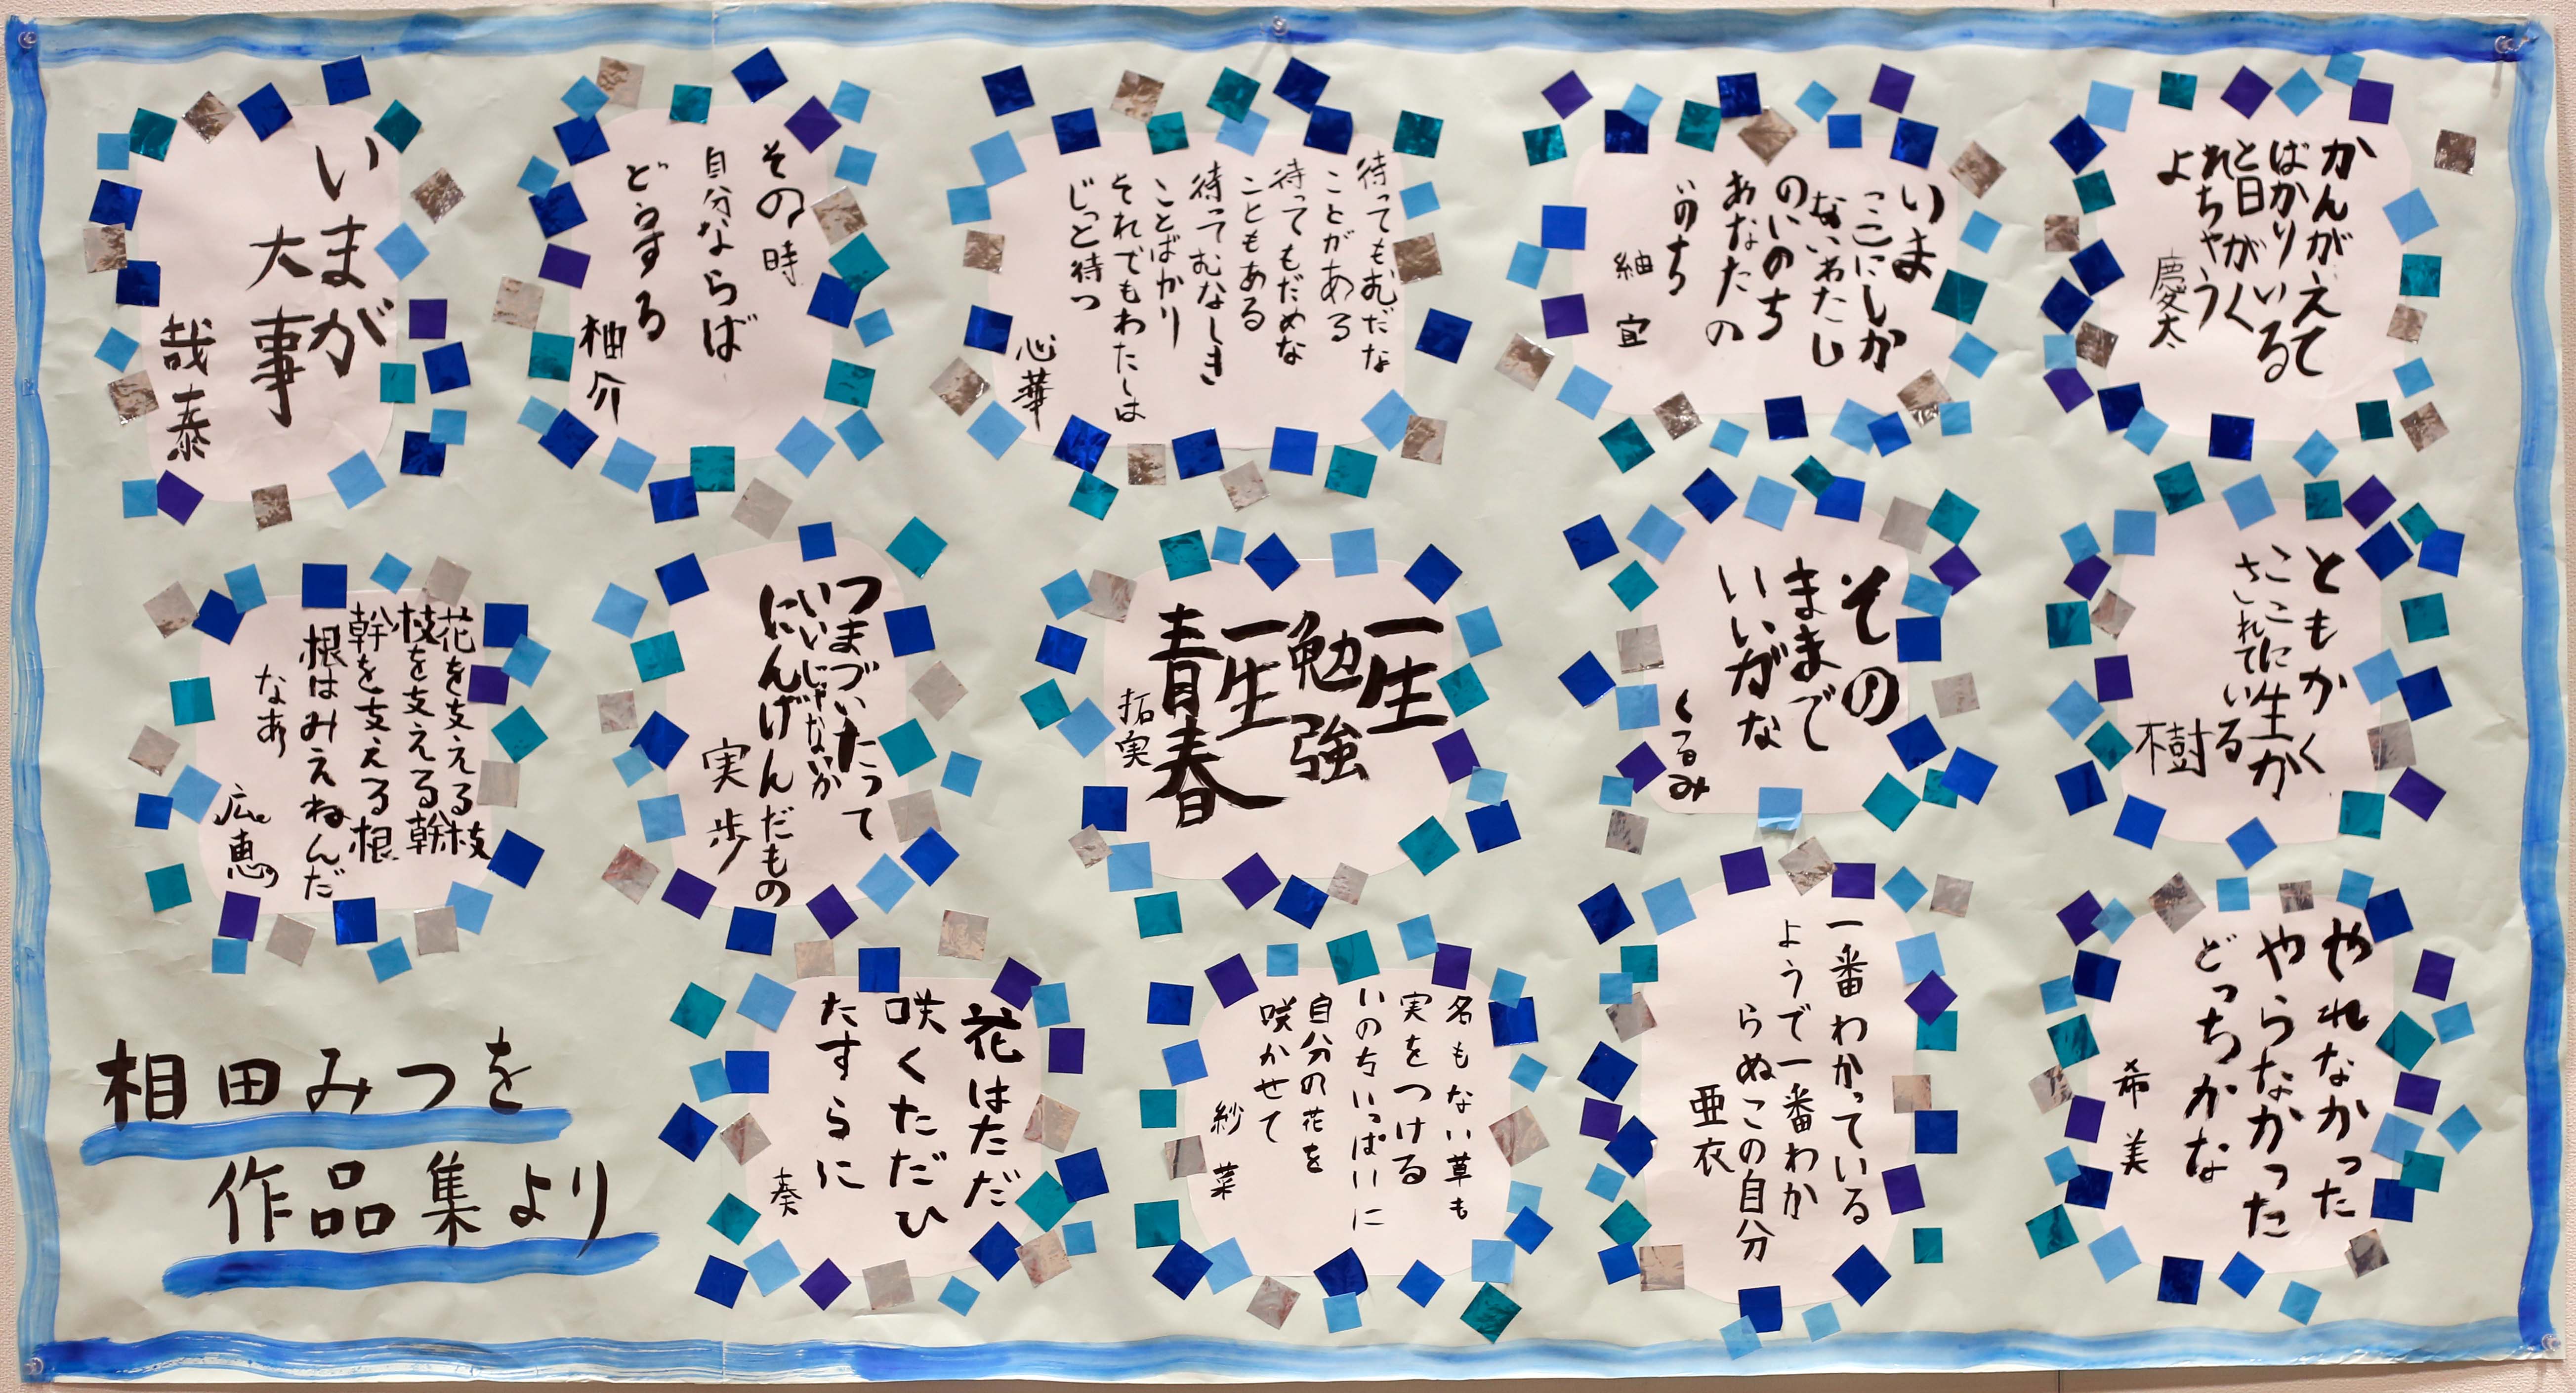 かんがえて
ばかりいる
と日がく
れちゃう
よ
慶太
いま
ここにしか
ないわたし
のいのち
あなたの
いのち
紬宜
待ってもむだな
ことがある
待ってもだめな
こともある
待ってむなしき
ことばかり
それでもわたしは
じっと待つ
心華
その時
自分ならば
どうする
柚介
いまが
大事
哉泰
ともかく
ここに生が
されている
樹
その
ままで
いいがな
くるみ
一生
勉強
一生
青春
拓実
つまづいたって
いいじゃないか
にんげんだもの
実歩
花を支える枝
枝を支える幹
幹を支える根
根はみえねんだ
なあ
広恵
やれなかった
やらなかった
どっちかな
希美
一番わかっている
ようで一番わか
らぬこの自分
亜衣
名もない草も
実をつける
いのちいっぱいに
自分の花を
咲かせて
紗菜
花はただ
咲くただひ
たすらに
奏
相田みつを
作品集より